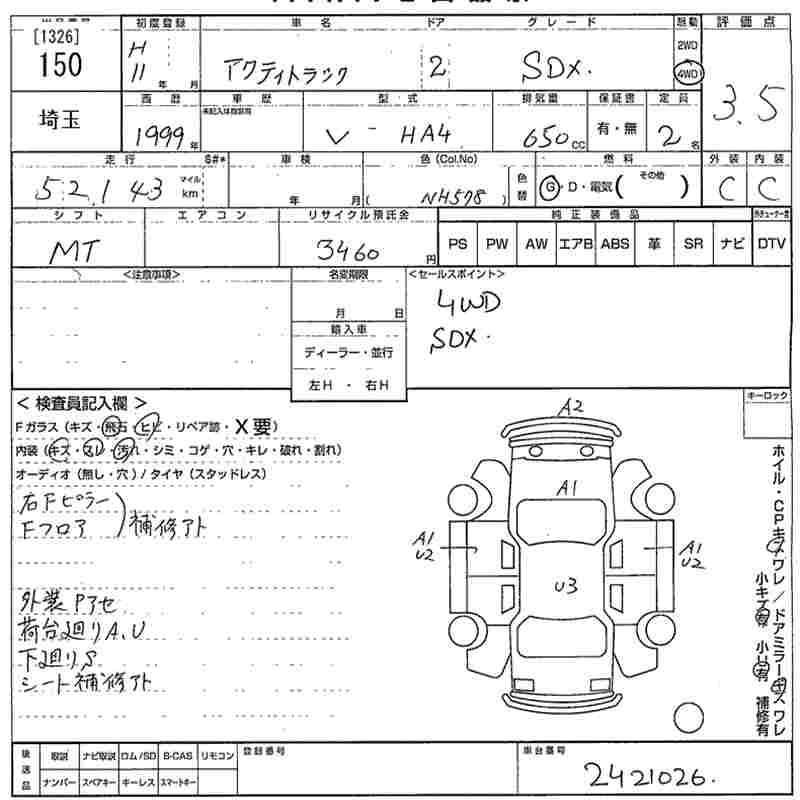 出品番号 初度登録 車名 ドア グレード 駆動 評価点
[1326] 150 H 11 年 月 アクティトラック 2 SDX. 2WD 4WD 3.5
埼玉 西暦 車歴 型式 排気量 保証書 定員
未記入は自家用
1999 年 V - HA4 650 CC 有・無 2 名
走行 S#* 車検 色(Col.No) 燃料 外装 内装
52,143 マイル km 年 月 ( NH578 ) 色替 G・D・電気( その他 ) C C
シフト エアコン リサイクル預託金 純正装備品
MT 3460 円 PS PW AW エアB ABS 革 SR ナビ DTV
<注意事項> 名変期限 <セールスポイント>
月 日 4WD
輸入車 SDX.
ディーラー・並行
左H ・ 右H
< 検査員記入欄 > キーロック
Fガラス (キズ・飛石・ヒビ・リペア跡・X要)
内装 (キズ・スレ・汚れ・シミ・コゲ・穴・キレ・破れ・割れ)
オーディオ (無し・穴) / タイヤ (スタッドレス)
右Fピラー
Fフロア
補修アト
外装Pアセ
荷台廻りA、U
下廻りS
シート補修アト
A2
A1
A1
U2
A1
U2
U3
ホイル・CPキズワレ/ドアミラーキズワレ
小キズ有 小U有 補修有
後送品 取説 ナビ取説 ロム/SD B-CAS リモコン 登録番号 車台番号
ナンバー スペアキー キーレス スマートキー 2421026.